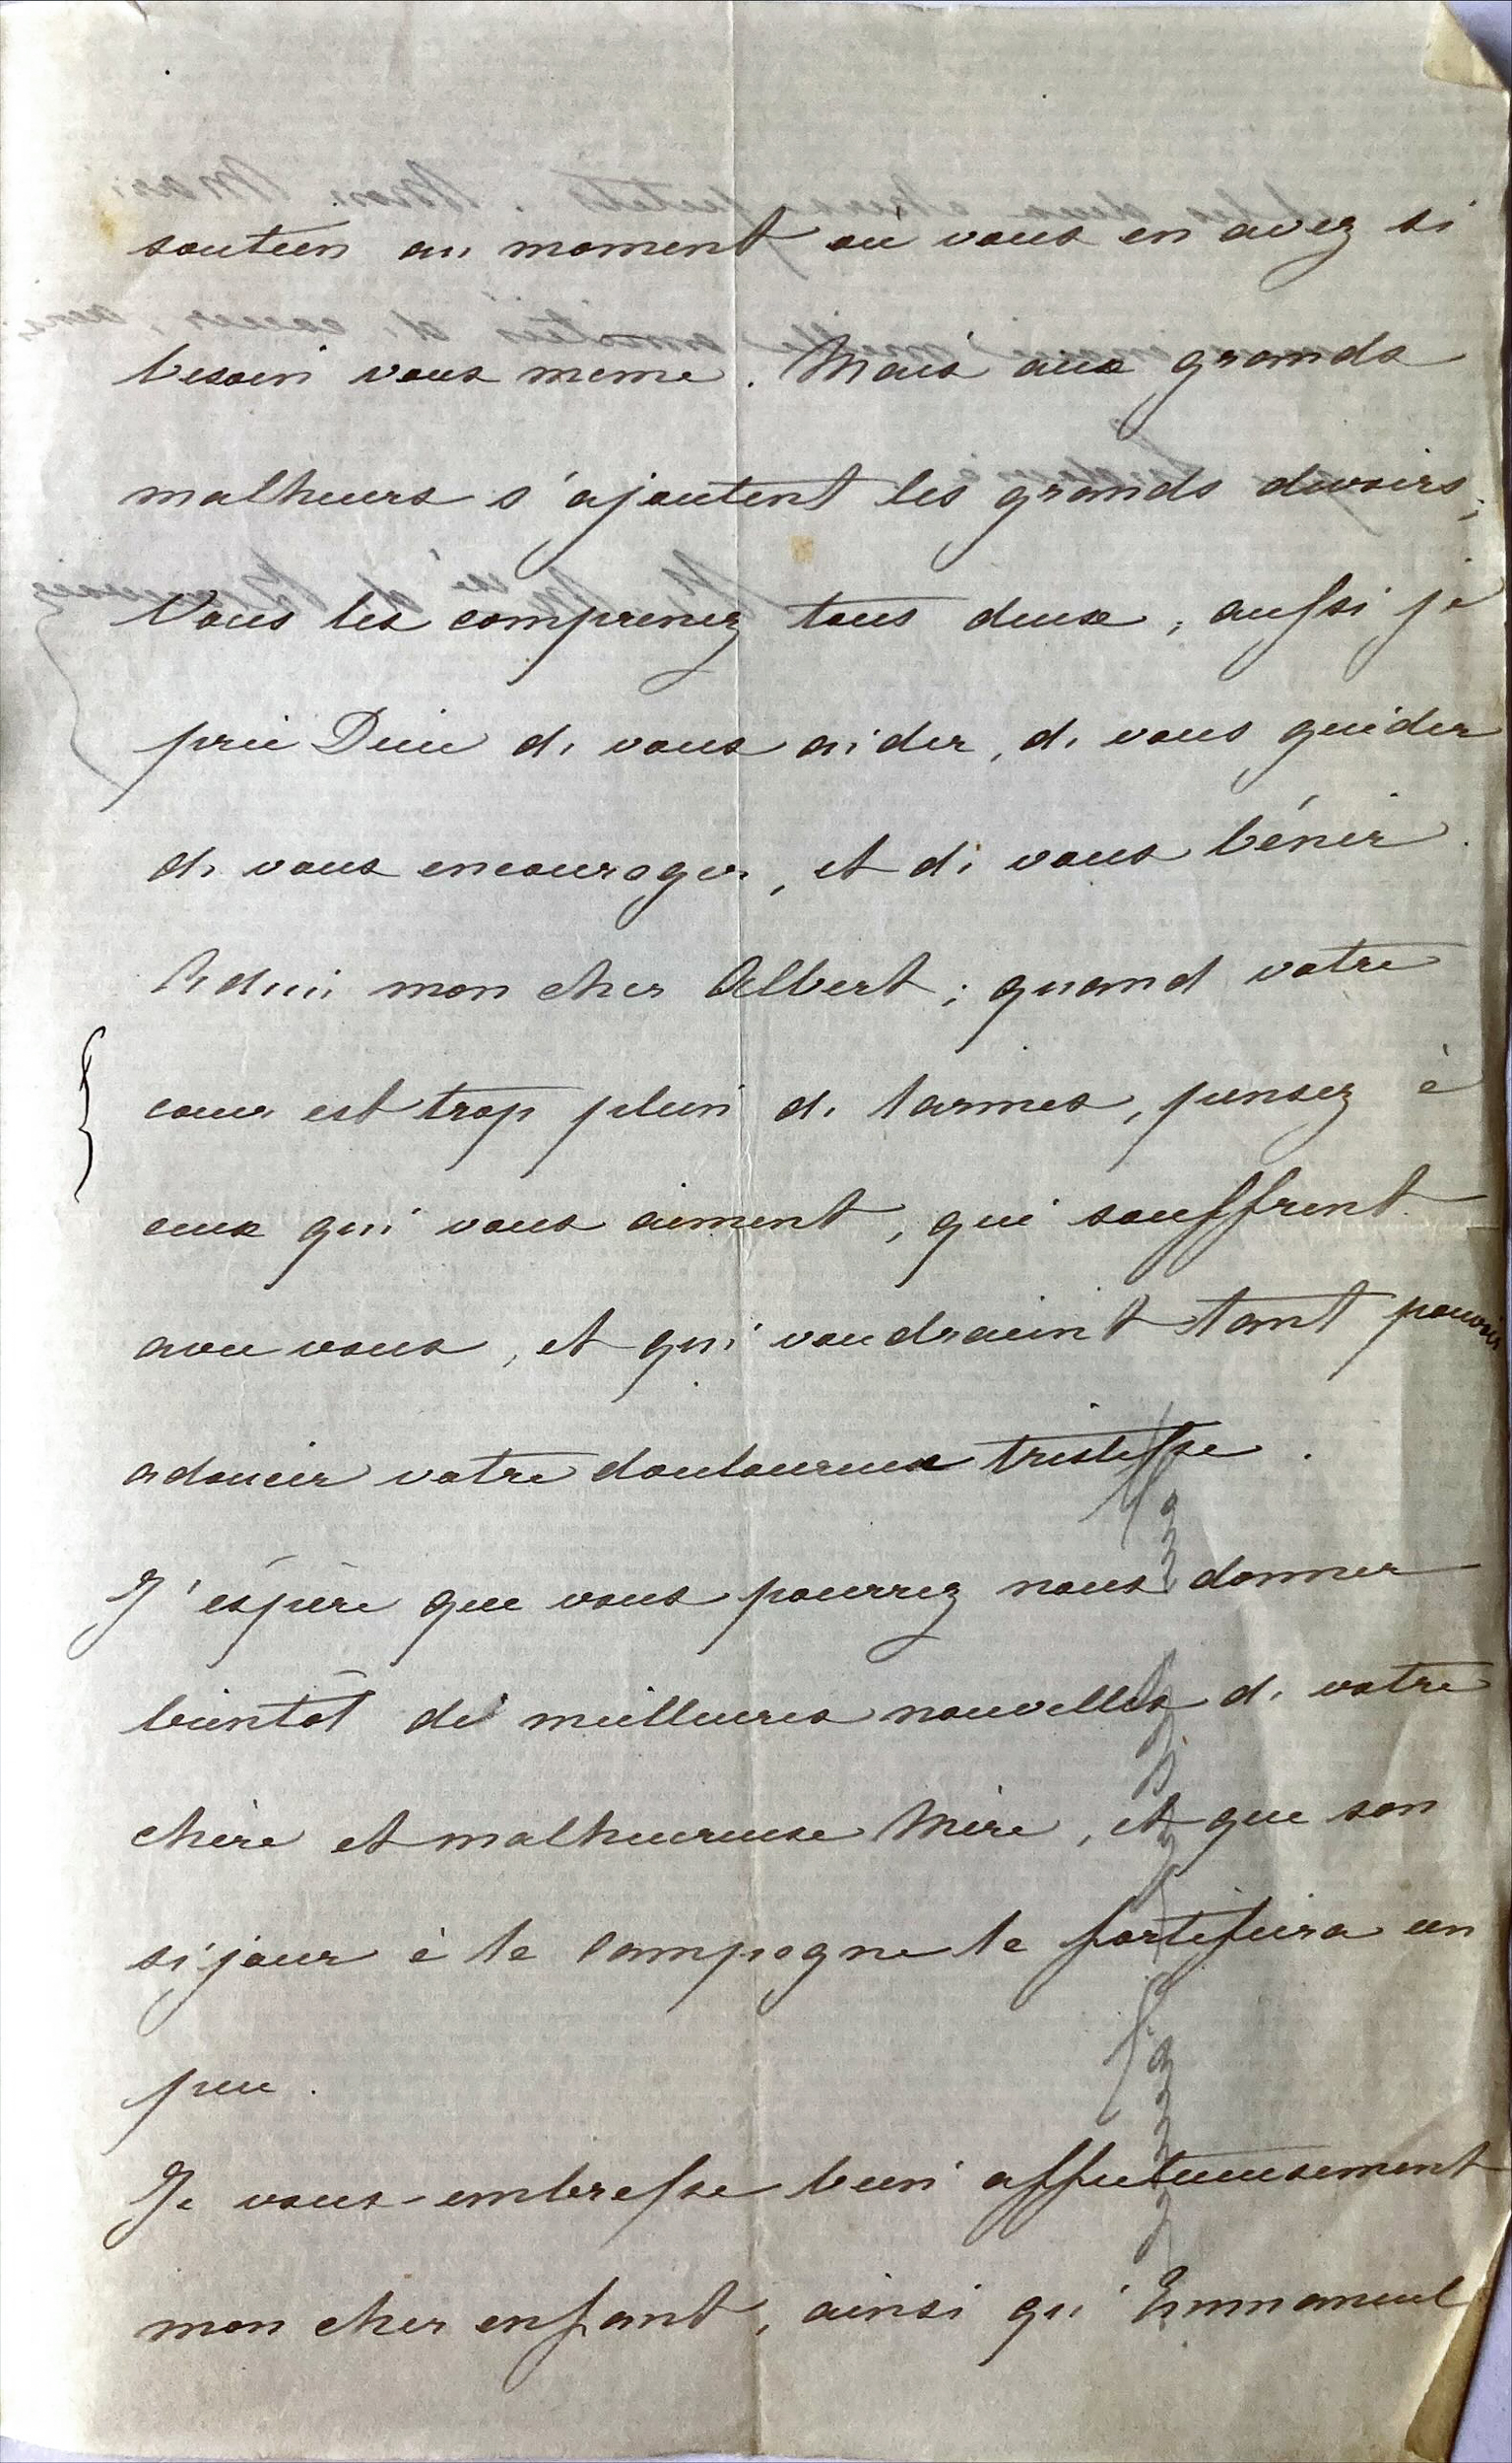 soutien au moment où vous en avez si
besoin vous meme. Mais aux grands
malheurs s'ajoutent les grands devoirs;
Vous les comprenez tous deux; aussi je
prie Dieu de vous aider, de vous guider
de vous encourager, et de vous bénir.
Adieu mon cher Albert; quand votre
cœur est trop plein de larmes, pensez à
ceux qui vous aiment, qui souffrent
avec vous, et qui voudraient tant pouvoir
adoucir votre douloureuse tristesse.
J'éspère que vous pourrez nous donner
bientôt de meilleures nouvelles de votre
chère et malheureuse Mère, et que son
séjour à la campagne la fortifiera un
peu.
Je vous embrasse bien affectueusement
mon cher enfant, ainsi qu'Emmanuel